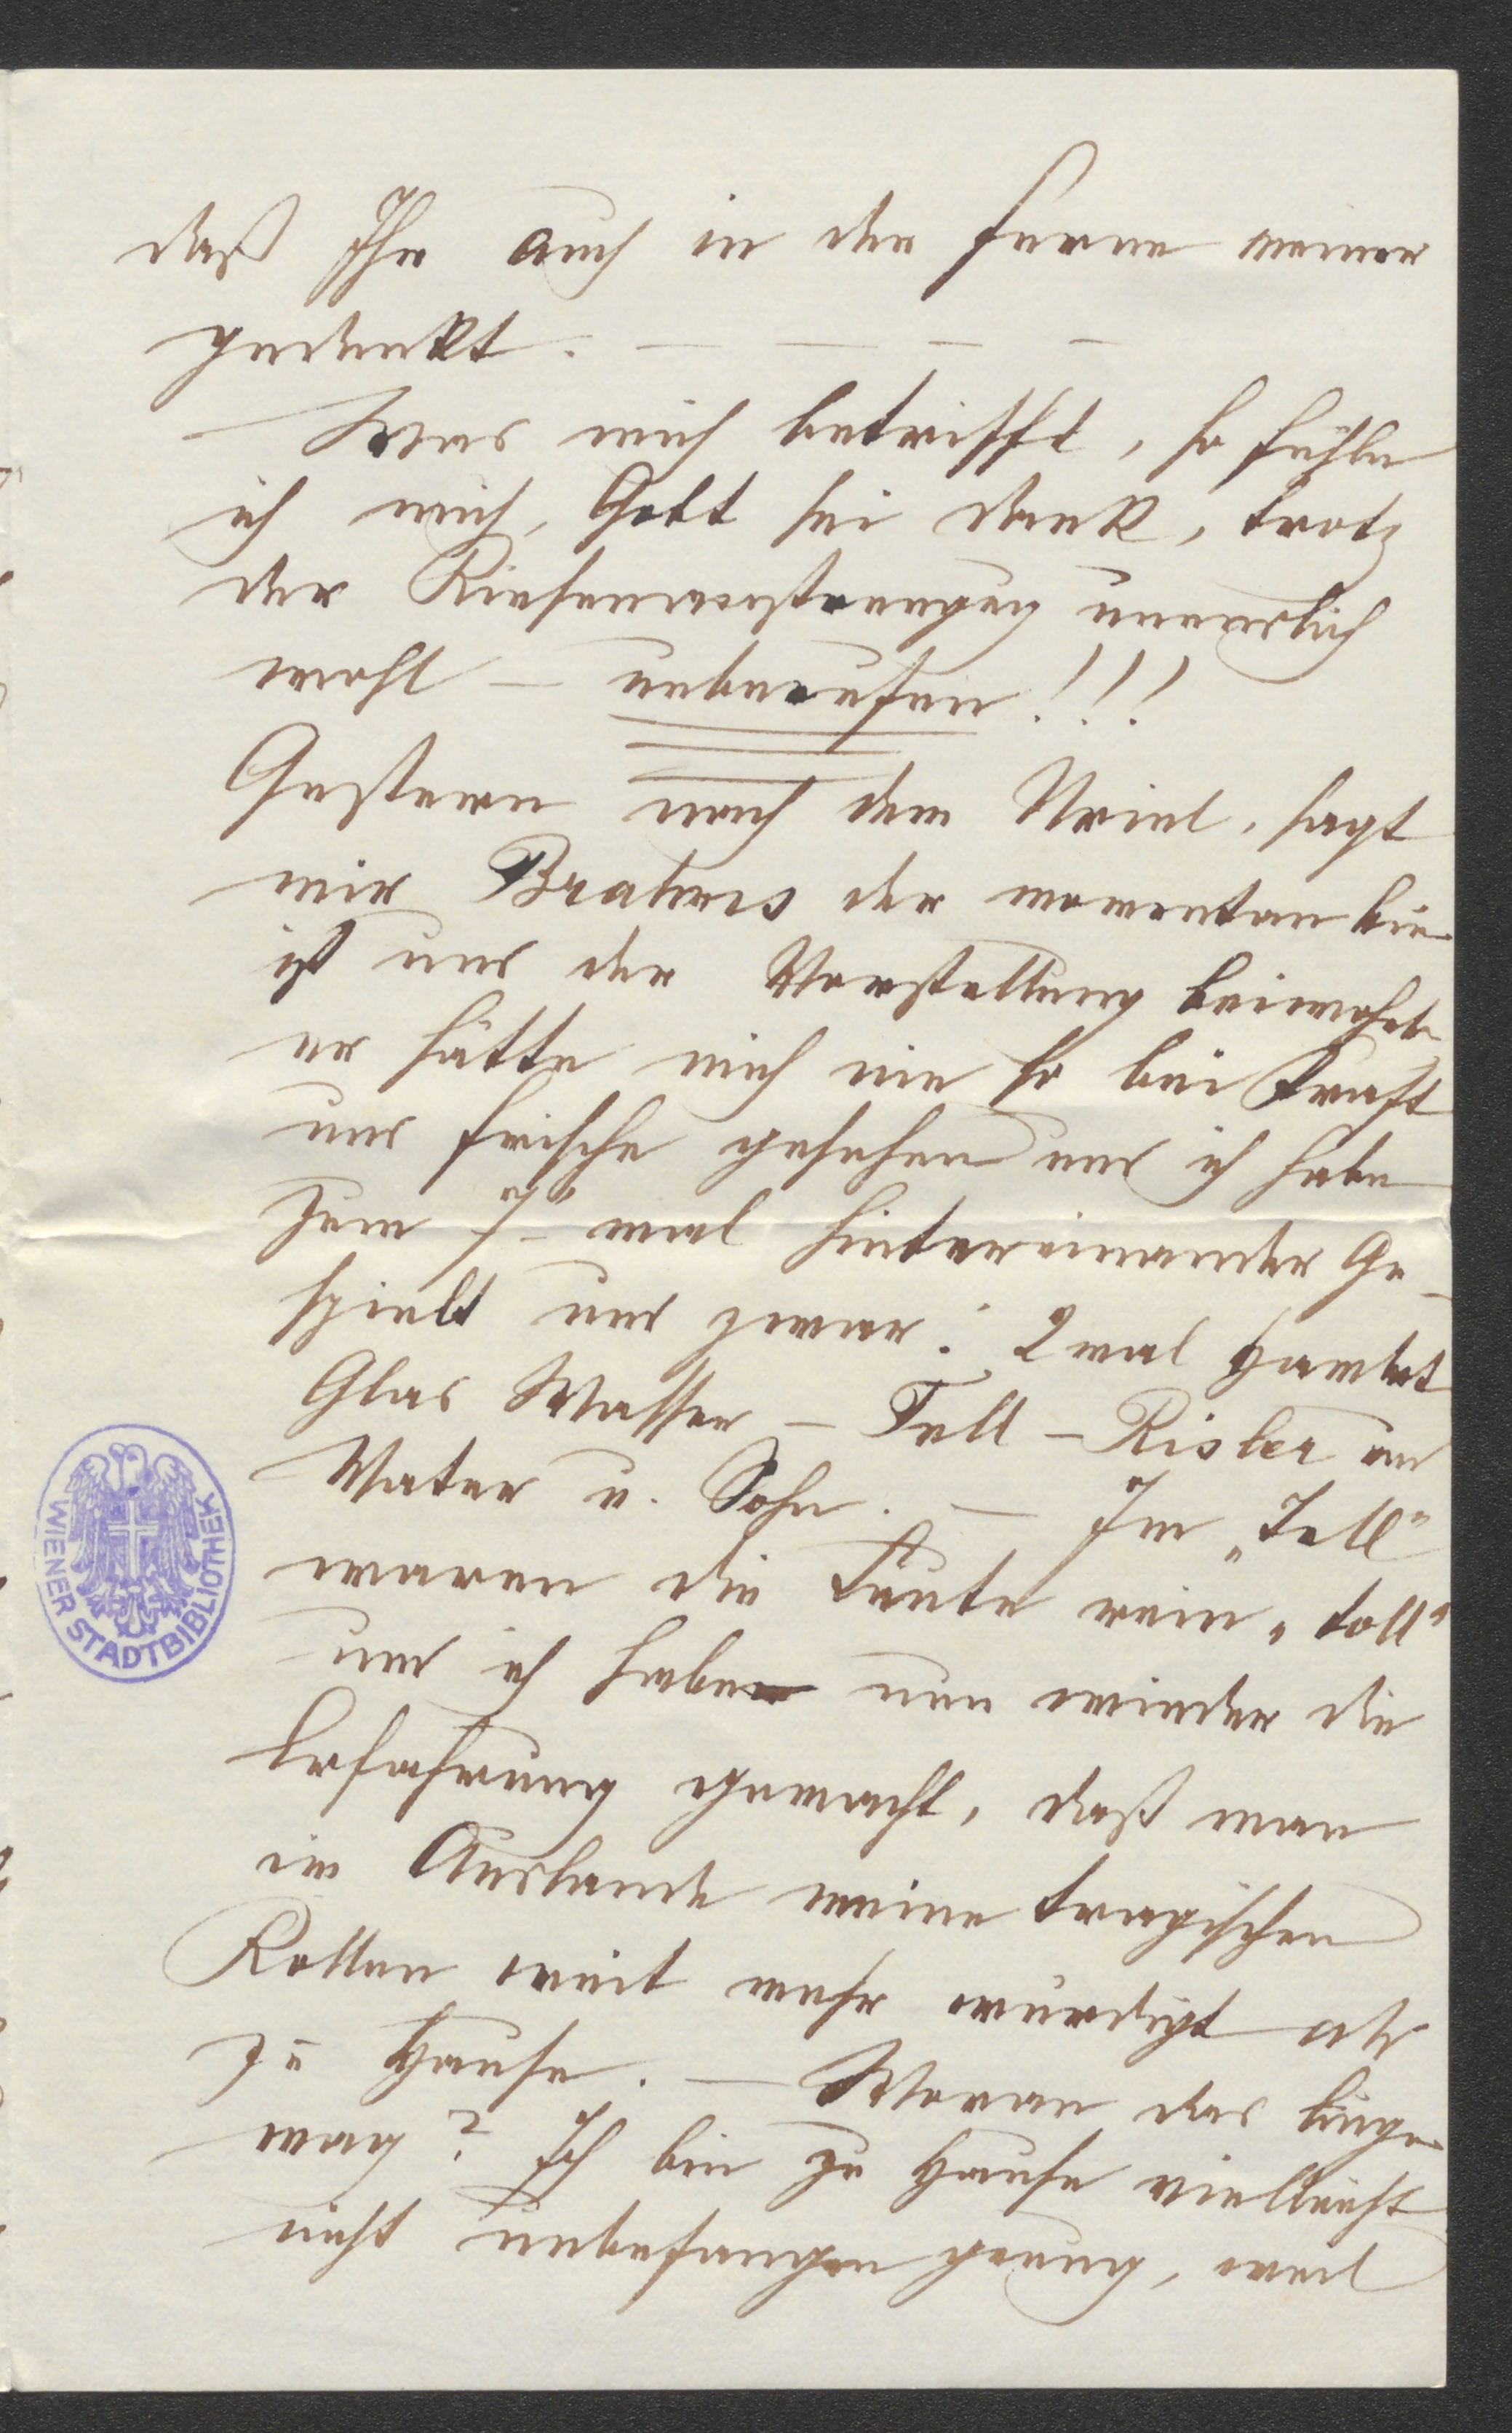 daß Ihr auch in der Ferne meiner
gedenkt. — — — —
— Was mich betrifft, so fühle
ich mich, Gott sei dank, trotz
der Riesenanstrengung unendlich
wohl — unberufen!!!
Gestern nach dem Uriel, sagt
mir Brahms der momentan hier
ist und der Vorstellung beiwohnte
er hätte mich nie so bei Kraft
und Frische gesehen und ich habe
zum 7ten mal hintereinander Ge-
spielt und zwar: 2mal Hamlet
Glas Wasser — Tell — Risler und
Vater u. Sohn. — Im „Tell"
waren die Leute rein „toll"
und ich habe nun wieder die
Erfahrung gemacht, daß man
im Auslande meine tragischen
Rollen weit mehr würdigt als
zu Hause. — Woran das liegen
mag? Ich bin zu Hause vielleicht
nicht unbefangen genug, weil
WIENER STADTBIBLIOTHEK